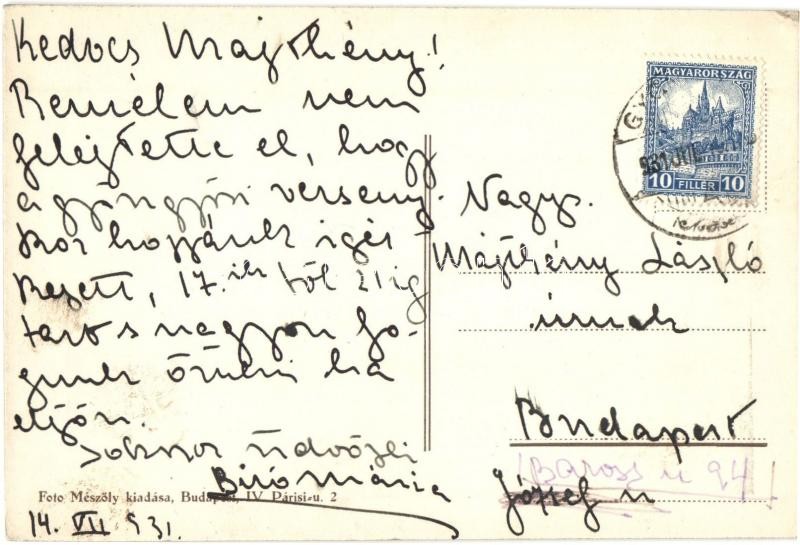 Kedves Majthény!
Remélem nem
felejtette el, hogy
a gyöngyösi verseny
kor hozzánk igér
kezett, 17.ik től 21 ig
tart s nagyon fo-
gunk örülni ha
eljön.
Sokszor üdvözli
Biró Mária
Foto Mészöly kiadása, Budapest, IV. Párisi-u. 2
14. VII 931.
MAGYARORSZÁG
10 FILLÉR 10
GY
931 JUL
Nagys.
Majthény László
úrnak
Budapest
Baross u 94
József u